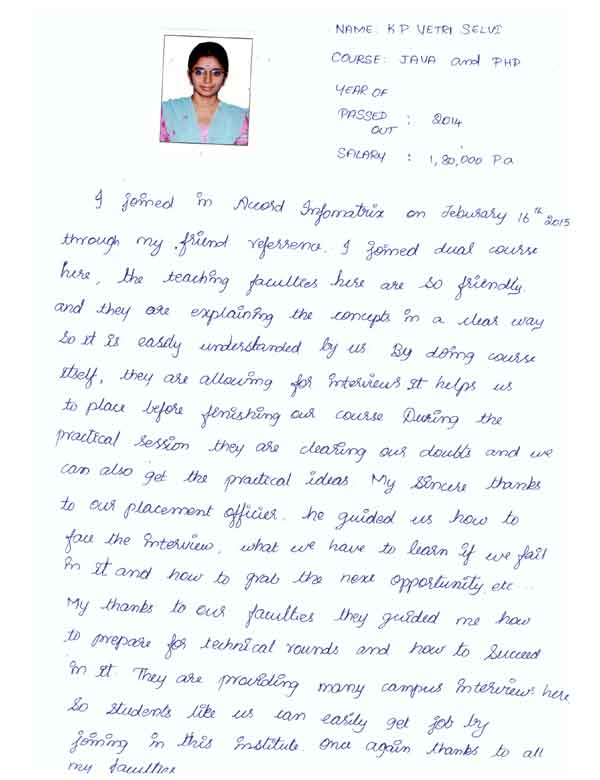 NAME: K P VETRI SELVI
COURSE: JAVA and PHP
YEAR OF
PASSED OUT : 2014
SALARY : 1,80,000 Pa
I joined in Accord Infomatrix on Feburary 16th 2015
through my friend referrence. I joined dual course
here, the teaching faculties here are so friendly.
and they are explaining the concepts in a clear way
so it is easily understanded by us. By doing course
itself, they are allowing for interviews it helps us
to place before finishing our course. During the
practical session they are clearing our doubts and we
can also get the practical ideas. My sincere thanks
to our placement officier. he guided us how to
face the interview, what we have to learn if we fail
in it and how to grab the next opportunity etc...
My thanks to our faculties they guided me how
to prepare for technical rounds and how to succeed
in it. They are providing many campus interviews here
so students like us can easily get job by
joining in this institute. Once again thanks to all
my faculties